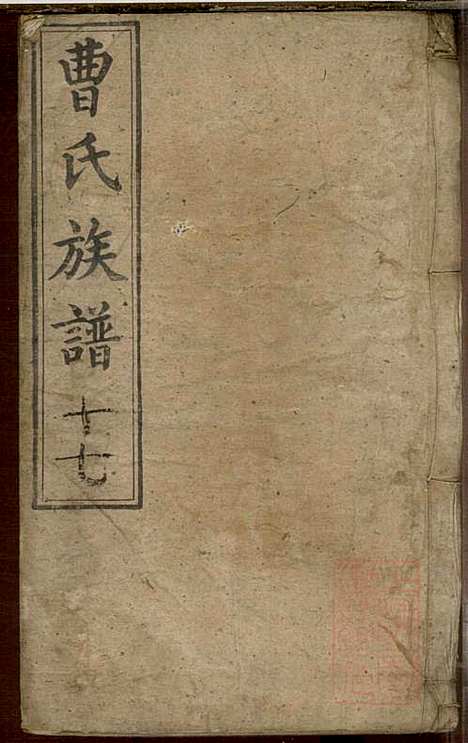 曹氏族譜
十七